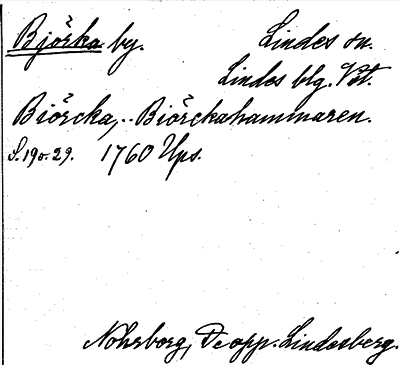 Björka by. Lindes sn.
Lindes blg. Vstm.
Biörcka, .. Biörckahammaren.
S. 190. 29. 1760 Ups.
Nohrborg, De opp. Lindesberg.